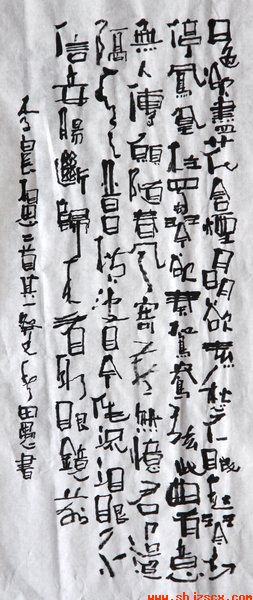 日色欲盡花含煙月明欲素愁不眠趙瑟初
停鳳凰柱蜀琴欲奏鴛鴦弦此曲有意
無人傳願隨春風寄燕然憶君迢迢
隔青天昔日橫波目今作流淚泉不
信妾腸斷歸來看取明鏡前
李白長相思二首其一癸巳田愚書
www.shjzscx.com